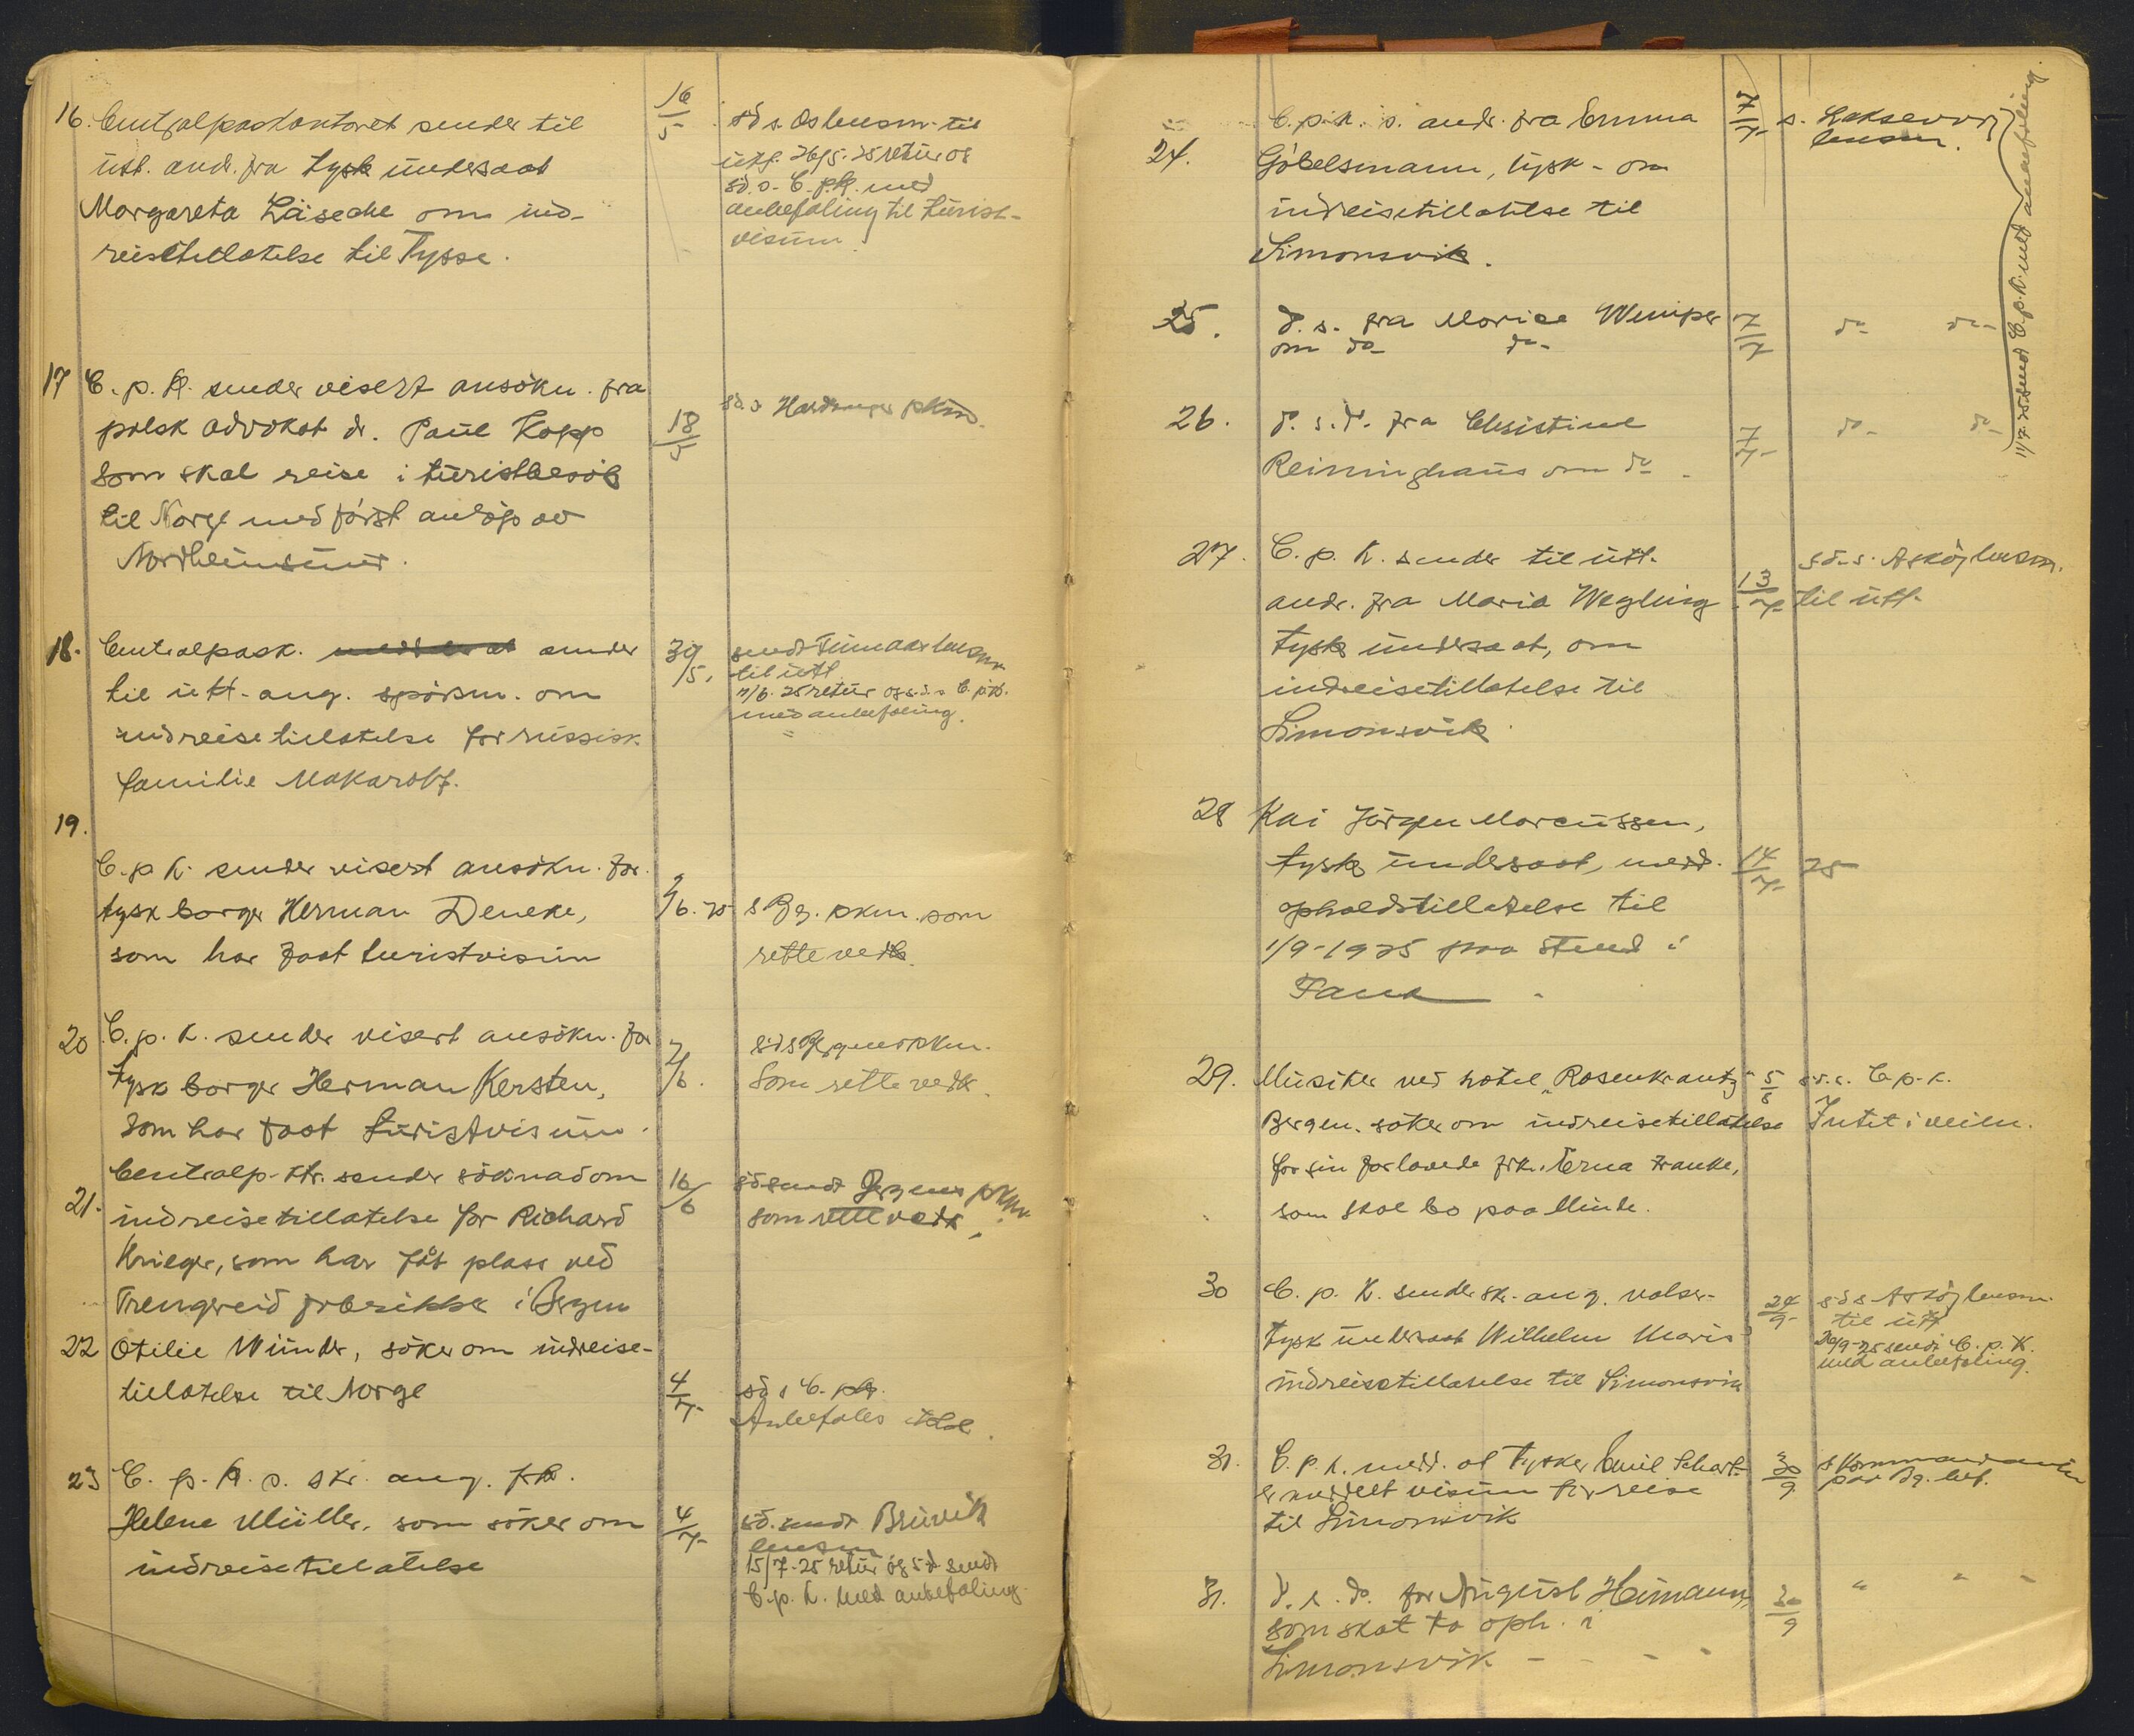 16. Centralpaskontoret sender til
utt. andr. fra tysk undersaat
Margareta Läseche om ind-
reisetillatelse til Tysse.
16/5
sd s. Os lensm. til
utt. 26/5-25 retur og
sd. s. C.p.k. med
anbefaling til turist-
visum
17 C. p. K. sender visert ansökn. fra
polsk advokat dr. Paul Kopp
som skal reise i turistbesök
til Norge med först anlöp av
Nordheimsund.
18/5
sd. s Hardanger pkm.
18. Centralpask. sender
til utt. ang. spörsm. om
indreisetillatelse for russisk
familie Makaroff.
30/5.
sendt lensm.
til utt.
/6-25 retur og s.d. s C. p.K.
med anbefaling.
19.
C. p K. sender visert ansökn. for
tysk borger Herman Deneke,
som har faat turistvisum
2/6.25
s Bg. pkm. som
rette vedk.
20 C. p. K. sender visert ansökn. for
tysk borger Herman Kersten,
som har faat turistvisum.
2/6.
sd s Bergens pkm.
som rette vedk.
21. Centralp.ktr. sender söknad om
indreisetillatelse for Richard
Krieger, som har fåt plass ved
Trengereid fabrikker i Bergen
16/6
sd. sendt Bergens pkm.
som rette vedk.
22 Otilie Wünder, söker om indreise-
tillatelse til Norge
4/7
sd s C. pk.
Anbefales ikke.
23 C. p. K. s. skr. ang. frk.
Helene Müller, som söker om
indreisetillatelse
4/7
sd. sendt Bruvik
lensm
15/7-25 retur og s d sendt
C. p. K. med anbefaling.
24. C. p. K. s. andr. fra Emma
Göbelsmann, tysk - om
indreisetillatelse til
Simonsvik.
7/7
s. Laksevåg
lensm.
25. d. s. fra Marie Wemper
om do- do-
7/7
do- do-
26. d. s. d. fra Christine
Reininghaus om do.
7/7
do- do-
11/7.25 sendt C.p.K. med anbefaling.
27. C. p. K. sender til utt.
andr. fra Maria Wegling
tysk undersaat, om
indreisetillatelse til
Simonsvik.
13/7
s d. s. Asköy lensm.
til utt.
28 Kai Jörgen Marcussen,
tysk undersaat, medd.
opholdstillatelse til
1/9-1925 paa Stend i
Fana
14/7 25
29. Musiker ved hotel "Rosenkrantz"
Bergen. söker om indreisetillatelse
for sin forlovede frk. Erna Franke,
som skal bo paa Minde.
5/8
s.d.s. C. p. k.
Intet i veien.
30 C. p. K. sender skr. ang.
tysk undersaat Wilhelm Maris
indreisetillatelse til Simonsvik
24/9
s d s Asköy lensm.
til utt
/9-25 sendt C. p. K.
med anbefaling.
31. C. p. K. medd. at tysker Emil Schart
er meddelt visum for reise
til Simonsvik
30/9
s Kommandanten
paa Bg. bef.
31. d. s. do. for August Heimann,
som skal ta oph. i
Simonsvik - - -
30/9
" " -